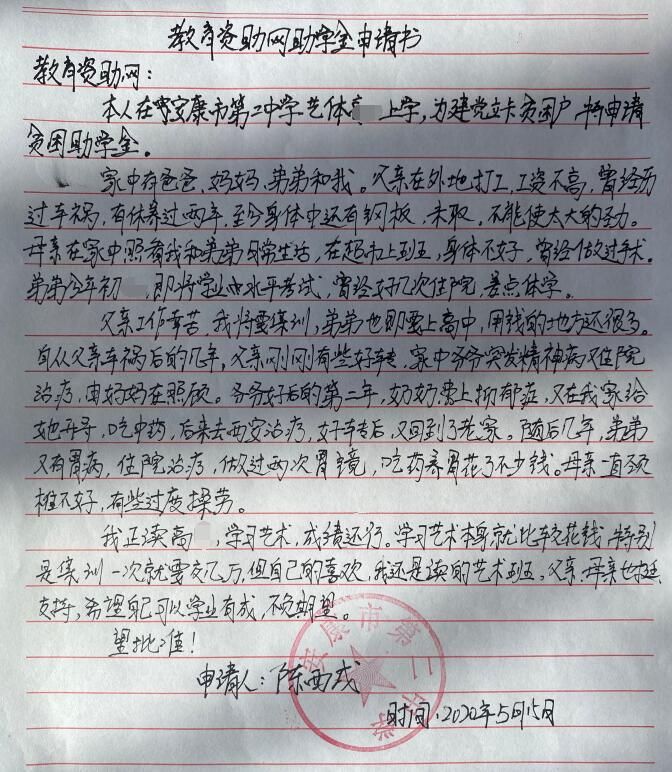 教育资助网助学金申请书
教育资助网：
本人在安康市第二中学艺体高上学，为建党立卡贫困户，特申请
贫困助学金。
家中有爸爸、妈妈、弟弟和我。父亲在外地打工，工资不高，曾经历
过车祸，有休养过两年，至今身体中还有钢板，未取，不能使太大的劲。
母亲在家中照看我和弟弟日常生活，在超市上班，身体不好，曾经做过手术。
弟弟今年初，即将学业水平考试，曾经好几次住院，差点休学。
父亲工作辛苦，我将要集训，弟弟也即要上高中，用钱的地方还很多。
自从父亲车祸后的几年，父亲刚刚有些好转，家中爷爷突发精神病又住院
治疗，由妈妈在照顾。爷爷好后的第二年，奶奶患上抑郁症，又在我家给
她开导，吃中药，后来去西安治疗，好转后，又回到了老家。随后几年，弟弟
又有胃病，住院治疗，做过两次胃镜，吃药养胃花了不少钱。母亲一直颈
椎不好，有些过度操劳。
我正读高，学习艺术，成绩还行。学习艺术本身就比较花钱，特别
是集训一次就要交几万，但自己的喜欢，我还是读的艺术班，父亲、母亲也挺
支持，希望自己可以学业有成，不负期望。
望批准！
申请人：陈西成
时间：2020年5月15日
安康市第二中学